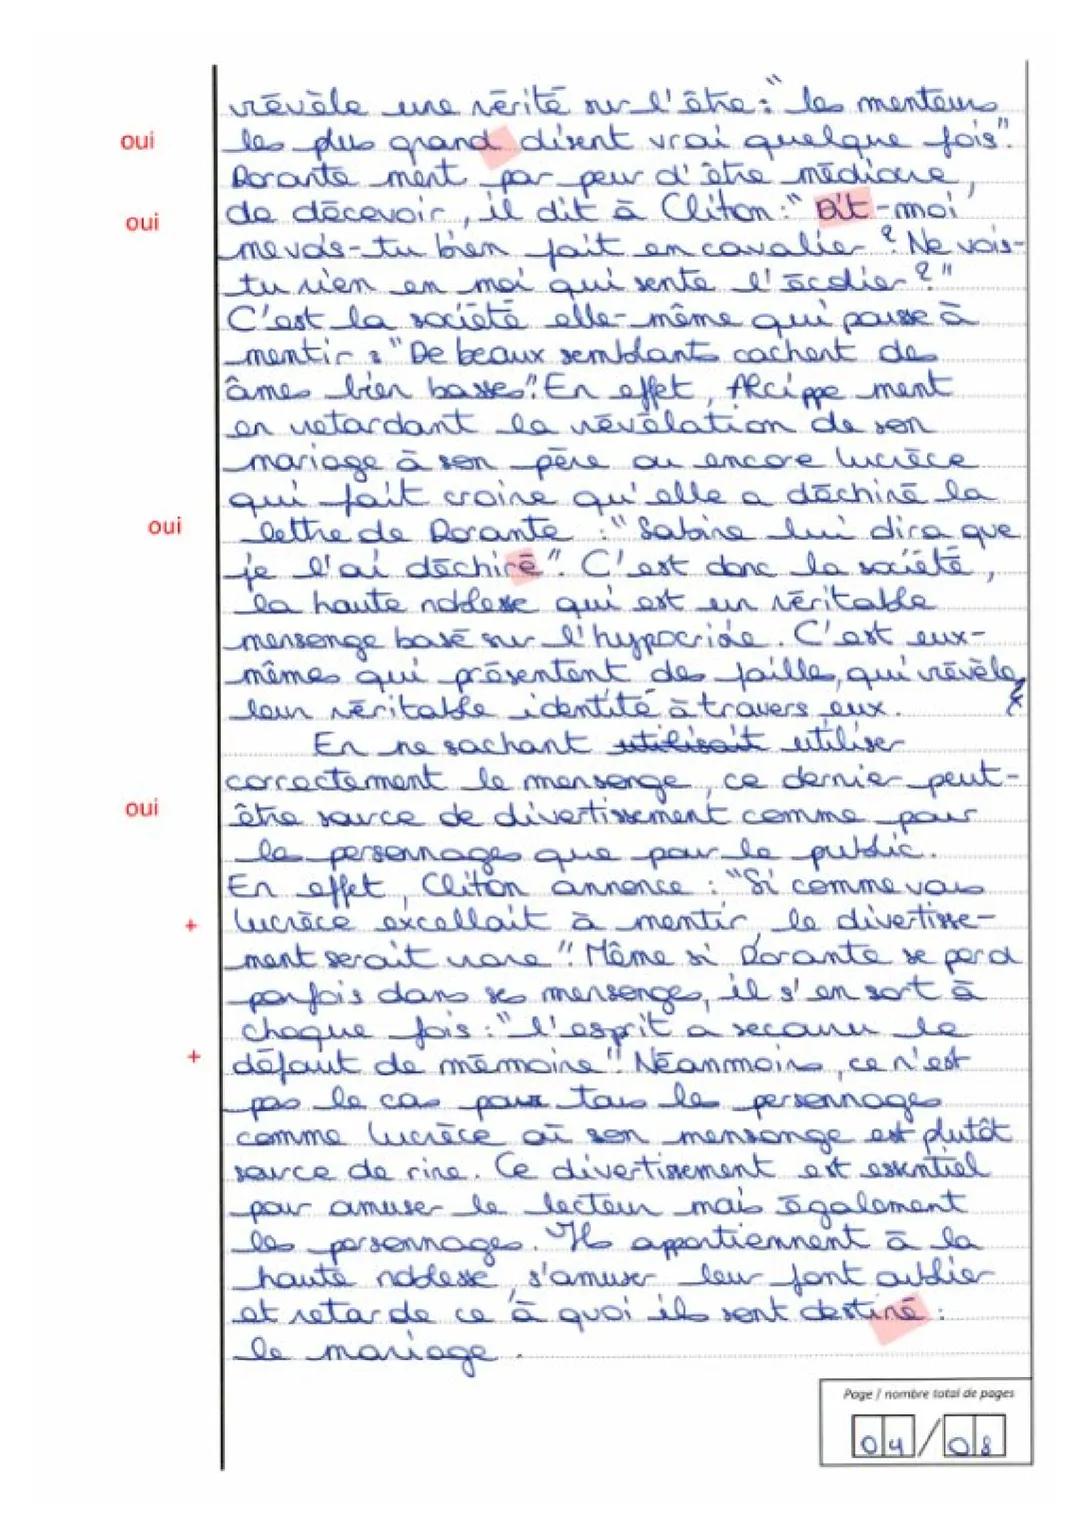 révèle une vérité sur l'être : "les menteurs
oui
les plus grand disent vrai quelque fois".
Dorante ment par peur d'être médiocre,
oui
de décevoir, il dit à Cliton : "Dit-moi
me vois-tu bien fait en cavalier ? Ne vois-
tu rien en moi qui sente l'écolier ?"
C'est la société elle-même qui pousse à
mentir : "De beaux semblants cachent des
âmes bien basses". En effet, Alcippe ment
en retardant la révélation de son
mariage à son père ou encore lucrèce
qui fait croire qu'elle a déchiré la
oui
lettre de Dorante : "Sabine lui dira que
je l'ai déchiré". C'est donc la société,
la haute noblesse qui est un véritable
mensonge basé sur l'hypocrisie. C'est eux-
mêmes qui présentent des faille, qui révèle
leur véritable identité à travers eux.
En ne sachant utilisait utiliser
correctement le mensonge, ce dernier peut-
oui
être source de divertissement comme pour
les personnages que pour le public.
En effet, Cliton annonce : "Si comme vous
+
lucrèce excellait à mentir, le divertisse-
ment serait rare". Même si Dorante se perd
parfois dans ses mensonges, il s'en sort à
chaque fois : "l'esprit a secouru le
+
défaut de mémoire". Néanmoins, ce n'est
pas le cas pour tous les personnages
comme lucrèce où son mensonge est plutôt
source de rire. Ce divertissement est essentiel
pour amuser le lecteur mais également
les personnages. Ils appartiennent à la
haute noblesse, s'amuser leur font oublier
et retarde ce à quoi ils sont destiné :
le mariage.
Page / nombre total de pages
04/08